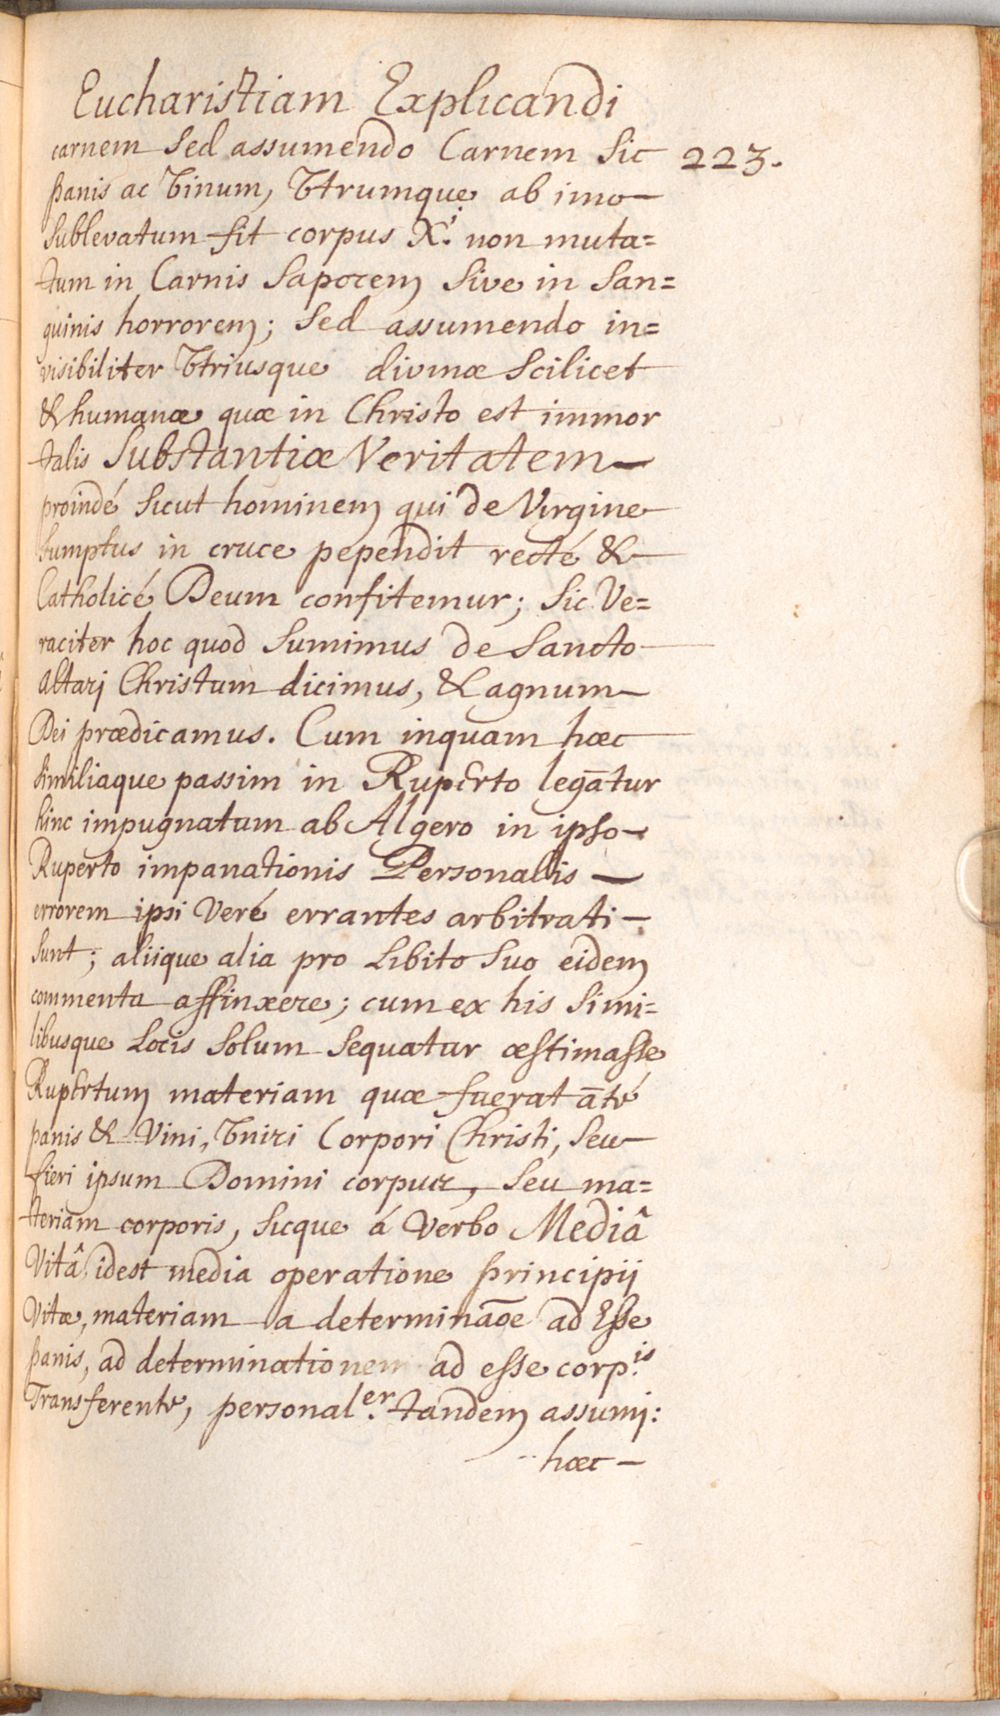 Eucharistiam Explicandi
223.
carnem Sed assumendo Carnem Sic
panis ac Vinum, Vtrumque ab imo—
Sublevatum fit corpus Xi. non muta=
tum in Carnis Saporem Sive in San=
guinis horrorem; Sed assumendo in=
visibiliter Vtriusque divinæ Scilicet
& humanæ quæ in Christo est immor
talis Substantiæ Veritatem—
proindé Sicut hominem qui de Virgine
Sumptus in cruce pependit recté &
Catholicé Deum confitemur; Sic Ve=
raciter hoc quod Sumimus de Sancto
Altari Christum dicimus, & agnum—
Dei prædicamus. Cum inquam hæc
Similiaque passim in Ruperto legātur
hinc impugnatum ab Algero in ipso—
Ruperto impanationis Personalis —
errorem ipsi Veré errantes arbitrati—
Sunt; aliique alia pro Libito Suo eidem
commenta affinxere; cum ex his Simi=
libusque Locis Solum Sequatur æstimasse
Rupertum materiam quæ fuerat āté
panis & Vini, Vniri Corpori Christi, Seu—
fieri ipsum Domini corpus, Seu ma=
teriam corporis, Sicque á Verbo Mediâ
Vitâ, idest media operatione principij
Vitæ, materiam a determinaōe ad Esse
panis, ad determinationem ad esse corp.is
Transferente, personal.er tandem assumj:
hæc —